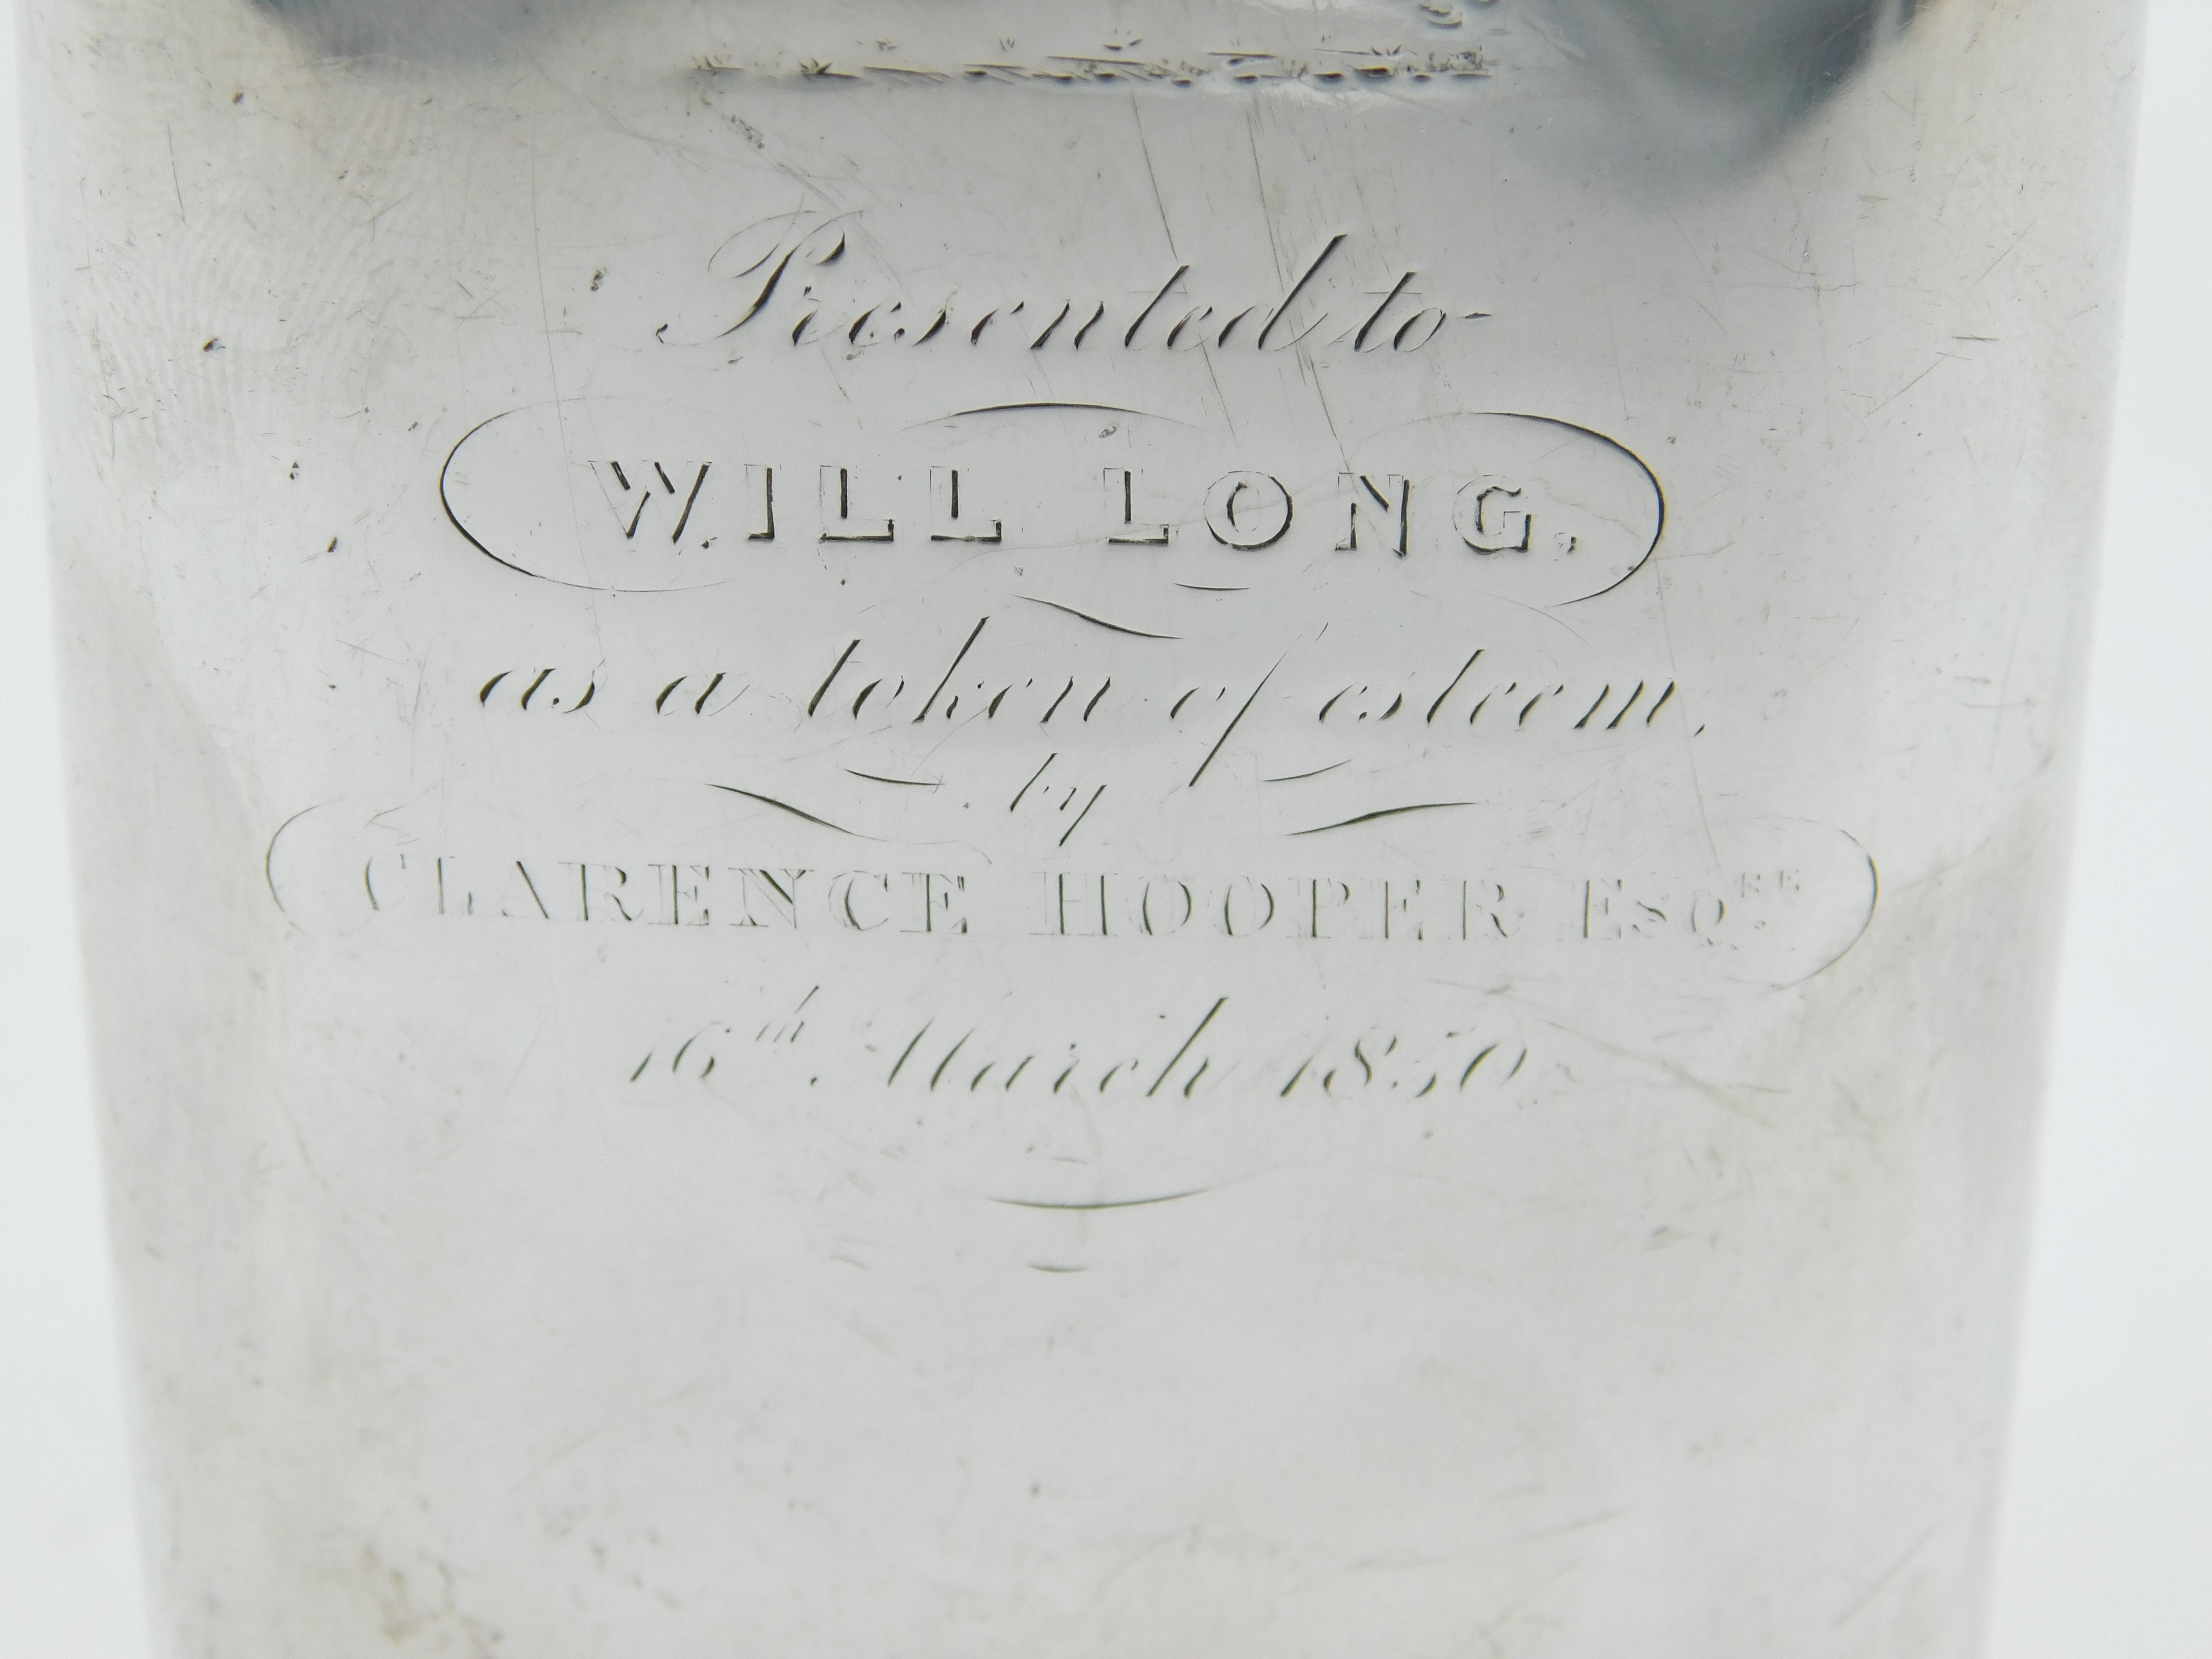 Presented to
WILL LONG.
as a token of esteem,
by
CLARENCE HOOPER ESQRE
16th. March 1850